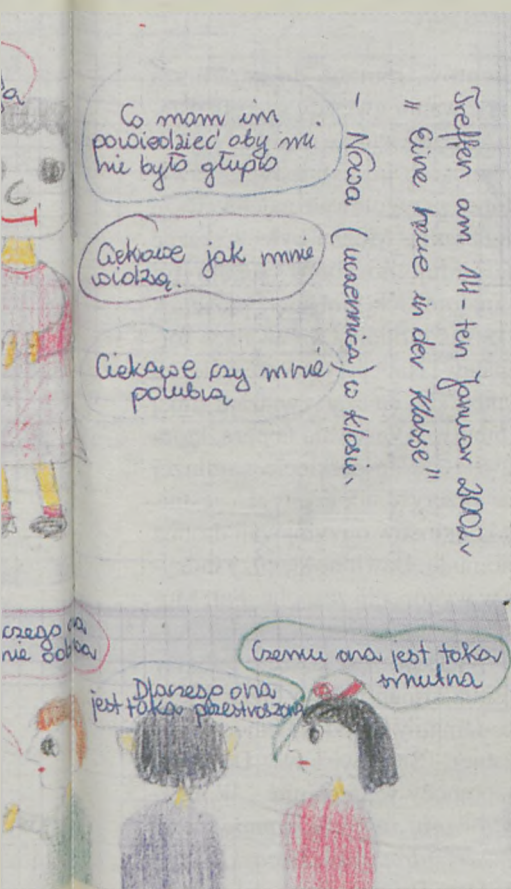 Treffen am 14-ten Januar 2002r
"Eine neue in der Klasse"
- Nowa (uczennica) w klasie.
Co mam im
powiedzieć aby mi
nie było głupio
Ciekawe jak mnie
widzą.
Ciekawe czy mnie
polubią
czego
nie
Dlaczego ona
jest taka przestraszona
Czemu ona jest taka
smutna